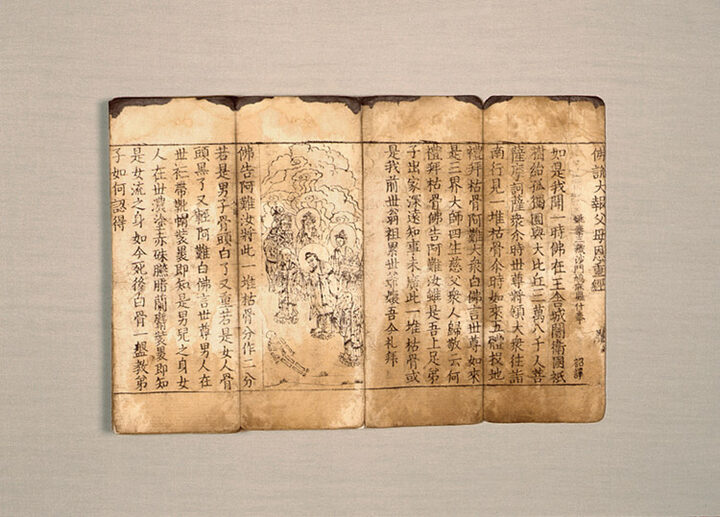 佛說大報父母恩重經
姚秦三藏沙門鳩摩羅什奉 詔譯
如是我聞一時佛在王舍城闍衛國祇
樹給孤獨園與大比丘三萬八千人菩
薩摩訶薩衆尒時世尊將領大衆徃詣
南行見一堆枯骨尒時如來五體投地
禮拜枯骨阿難大衆白佛言世尊如來
是三界大師四生慈父衆人歸敬云何
禮拜枯骨佛告阿難汝雖是吾上足弟
子出家深遠知事未廣此一堆枯骨或
是我前世翁祖累世爺孃吾今礼拜
佛告阿難汝將此一堆枯骨分作二分
若是男子骨頭白了又重若是女人骨
頭黑了又輕阿難白佛言世尊男人在
世衫帶鞋帽裝裹即知是男兒之身女
人在世濃塗赤硃臙脂蘭麝裝裹即知
是女流之身如今死後白骨一盤教弟
子如何認得